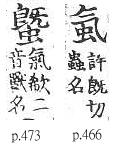 許旣切
蟲名
氣欷二
音獸名
p.473 p.466